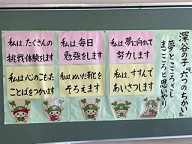 深谷の子 六つのちかい
夢とこころざし
まごころと思いやり
私は、夢に向かって
努力します
私は、すすんで
あいさつします
私は、毎日
勉強をします
私は、ぬいだ靴を
そろえます
私は、たくさんの
挑戦体験をします
私は、心のこもった
ことばをつかいます